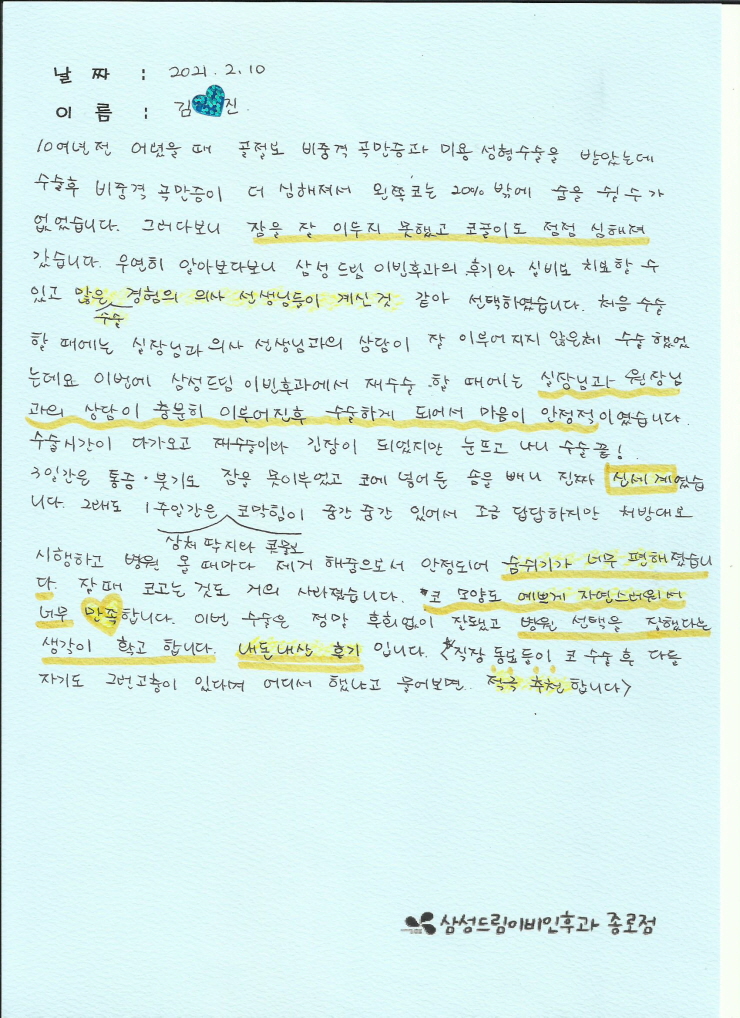 날 짜 : 2021. 2. 10
이 름 : 김 진
10여년 전 어렸을 때 골절로 비중격 곡만증과 미용 성형수술을 받았는데
수술후 비중격 곡만증이 더 심해져서 왼쪽코는 20% 밖에 숨을 쉴 수 가
없었습니다. 그러다보니 잠을 잘 이루지 못했고 코골이도 점점 심해져
갔습니다. 우연히 알아보다보니 삼성드림 이빈후과의 후기와 실비로 치료할 수
있고 많은 경험의 의사 선생님들이 계신 것 같아 선택하였습니다. 처음 수술
수술
할 때에는 실장님과 의사 선생님과의 상담이 잘 이루어지지 않은체 수술 했었
는데요 이번에 삼성드림 이빈후과에서 재수술 할 때에는 실장님과 원장님
과의 상담이 충분히 이루어진후 수술하게 되어서 마음이 안정적이였습니다.
수술시간이 다가오고 재수술이라 긴장이 되었지만 눈뜨고 나니 수술 끝!
3일간은 통증·붓기로 잠을 못이루었고 코에 넣어둔 솜을 빼니 진짜 신세계였습
니다. 그래도 1주일간은 코막힘이 중간 중간 있어서 조금 답답하지만 처방대로
상처 딱지와 콧물로
시행하고 병원 올 때마다 제거 해줌으로서 안정되어 숨쉬기가 너무 편해졌습니
다. 잘때 코고는 것도 거의 사라졌습니다. *코 모양도 예쁘게 자연스러워서
너무 만족합니다. 이번 수술은 정말 후회없이 잘됐고 병원 선택을 잘했다는
생각이 확고 합니다. 내돈내산 후기 입니다. <*직장 동료들이 코 수술 후 다들
자기도 그런고충이 있다며 어디서 했냐고 물어보면.. 적극 추천 합니다>
삼성드림이비인후과 종로점